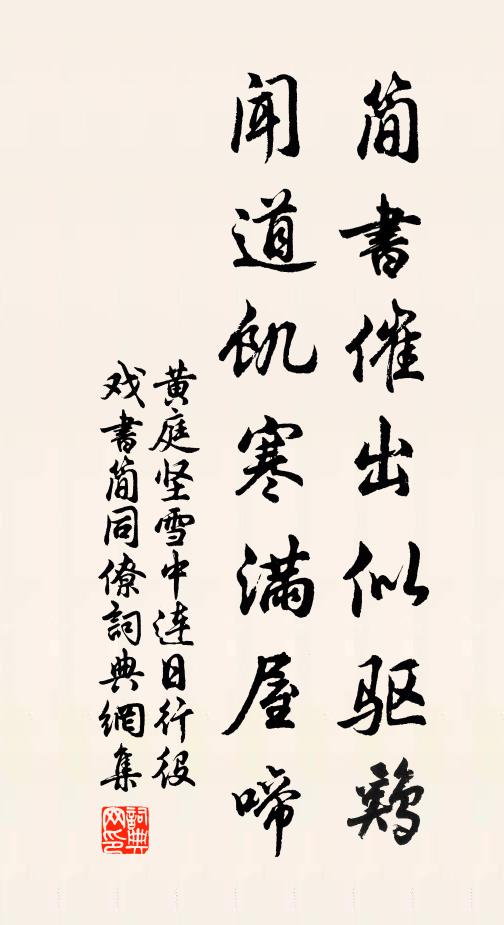 简書催出似驱鷄
闻道飢寒满屋啼
黄庭坚雪中连日行役
戏書简同僚詞典網集
詞典网印